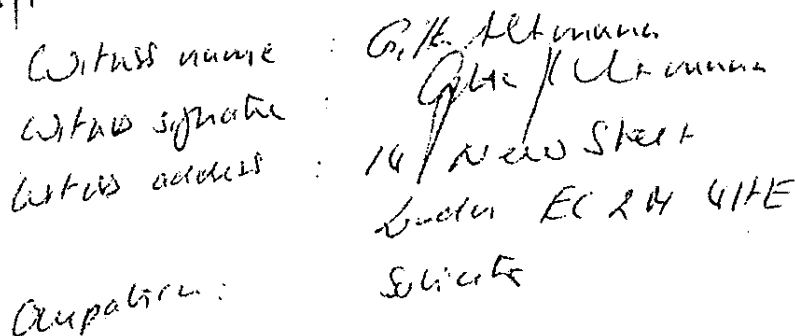 Witness name : Gitte Altmann
Witness signature :
Witness address : 14 New Street
London EC2M 4HE
Occupation: Solicitor